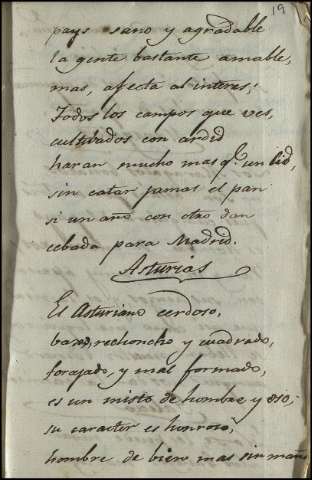 19
pays sano y agradable
la gente bastante amable,
mas, afecta al interes;
Todos los campos que ves,
cultibados con ardid
haran mucho mas q.e un Cid,
sin catar jamas el pan
si un año con otro dan
cebada para Madrid.
Asturias
El Asturiano cerdoso,
baxo, rechoncho y cuadrado,
forcejado, y mal formado,
es un misto de hombre y oso;
su caracter es honroso,
hombre de bien mas sin maña